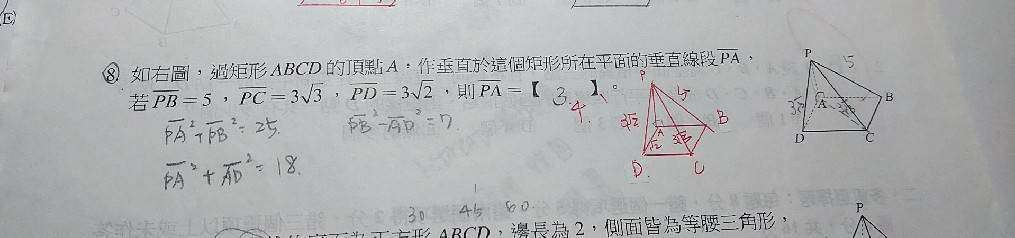 (E)
⑧. 如右圖,過矩形ABCD的頂點A,作垂直於這個矩形所在平面的垂直線段PA,
若PB=5,PC=3√3,PD=3√2,則PA=【 3 】。
4
PA²+PB²=25.
PB²-AD²=7.
PA²+AD²=18.
P
5
3√2
A
B
3√3
√2
D.
C
P
5
3√2
A
B
D
C
30 45 60
ABCD,邊長為2,側面皆為等腰三角形,
P